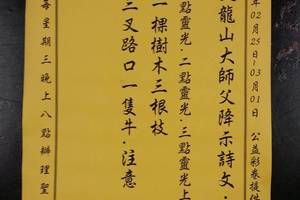 年02月25日~03月01日 公益彩券提供
龍山大師父降示詩文.
一點靈光.二點靈光.三點靈光上
一棵樹木三根枝
二叉路口一隻牛.注意
每星期三晚上八點辦理聖